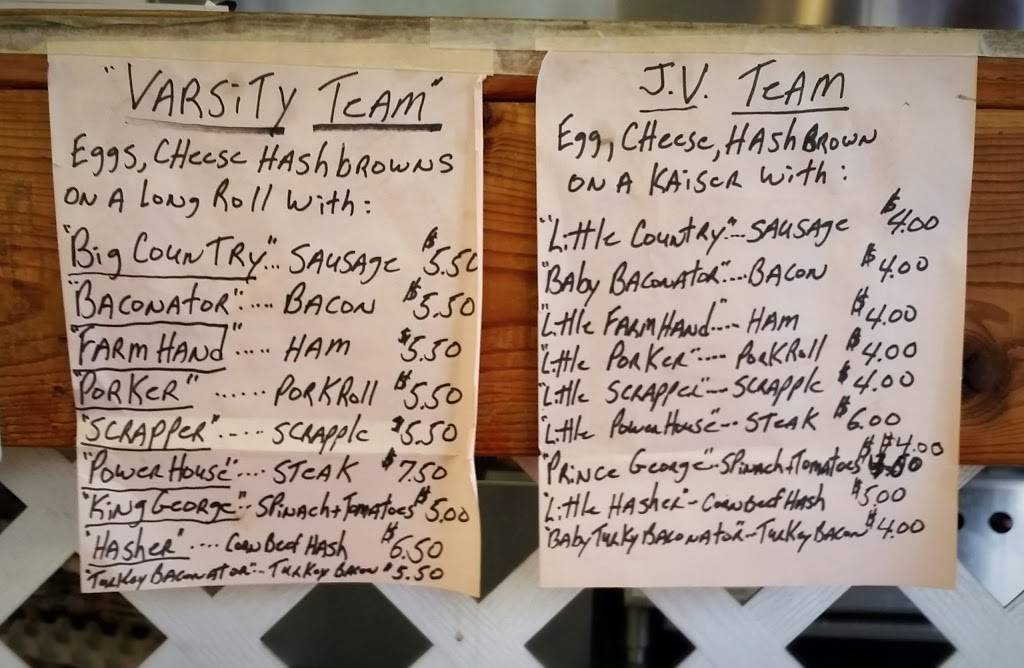 "VARSiTy TeAM"
Eggs, CHeese HAshbrowns
ON A Long Roll with:
"Big CounTry"... SAUSAge $5.50
"BACONATOR".... BACON $5.50
"FARM HAND"..... HAM $5.50
"PORKER" ...... PORKRoll $5.50
"SCRAPPER"..... SCRApple $5.50
"Power House".... STeAK $7.50
"King George".. SPinach+Tomatoes $5.00
"HAsher".... CornBeef HAsh $6.50
"Turkey BACONATOR"-- Turkey BACON $5.50
J.V. TeAM
Egg, CHeese, HAshBrown
ON A KAiser with:
"Little Country"... SAUSAge $4.00
"BABy BACONATOR"... BACON $4.00
"Little FARMHAND".... HAM $4.00
"Little PorKer".... PorKRoll $4.00
"Little SCRAPPer"--- SCRApple $4.00
"Little PowerHouse"-- STeAK $6.00
"Prince George"-- SPinach+Tomatoes $4.00
"Little HAsher"- CornBeef Hash $5.00
"BABy TurKy BACONATOR"-- TurKey BACON $4.00